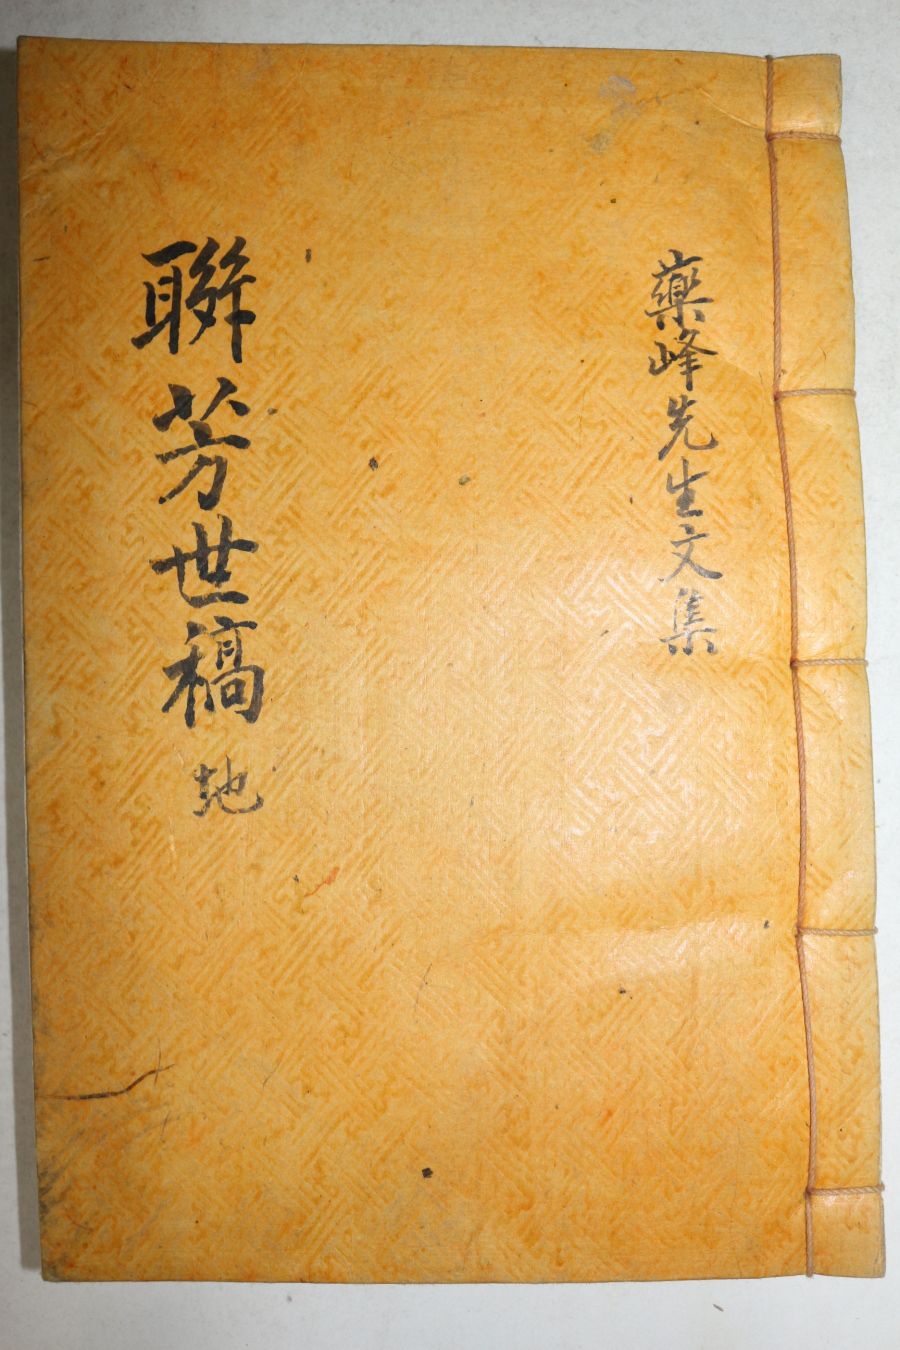 藥峰先生文集
聯芳世稿 地